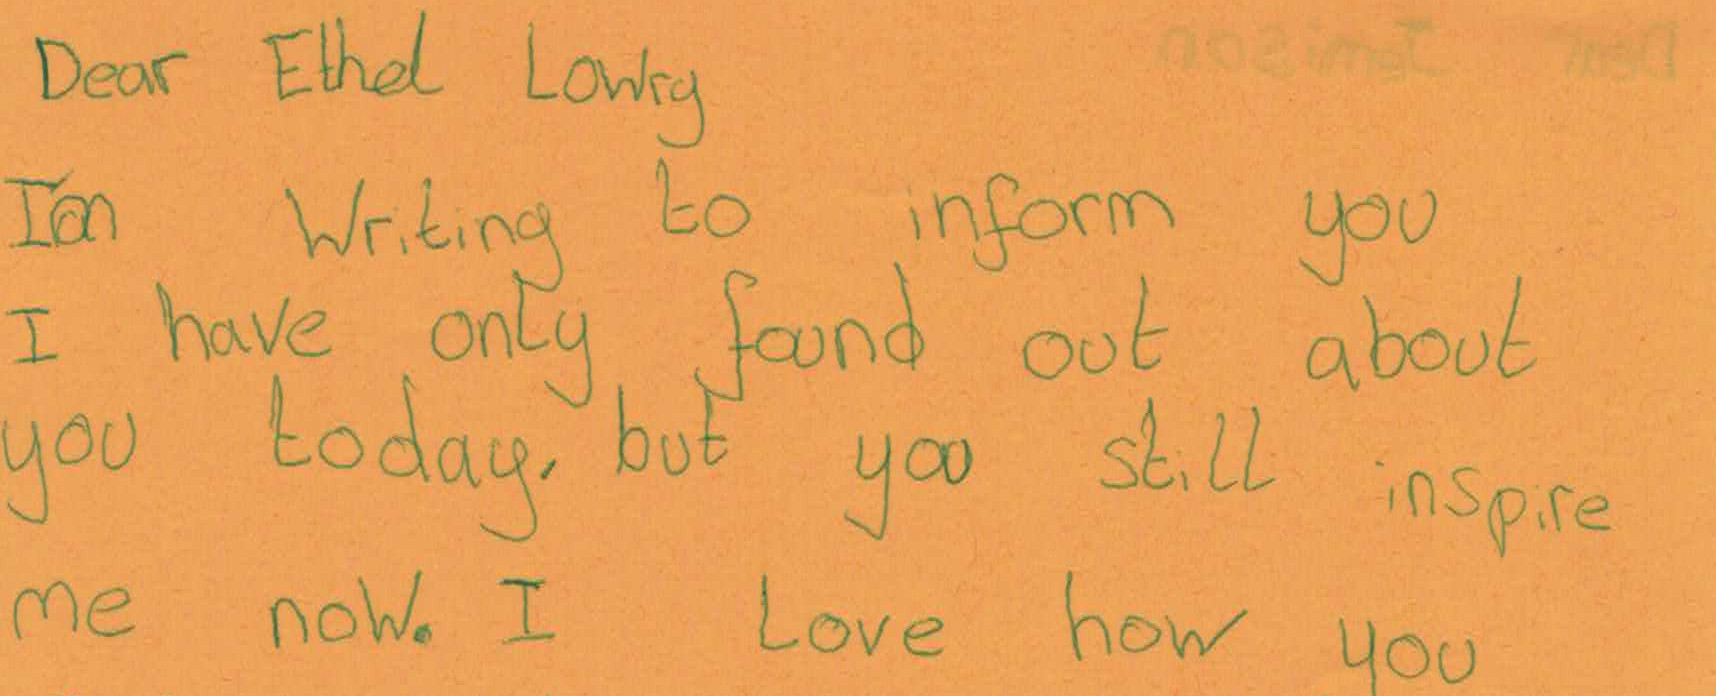 Dear Ethel Lowry
I'am Writing to inform you
I have only found out about
you today, but you still inspire
me now. I Love how you
Dear Jamison